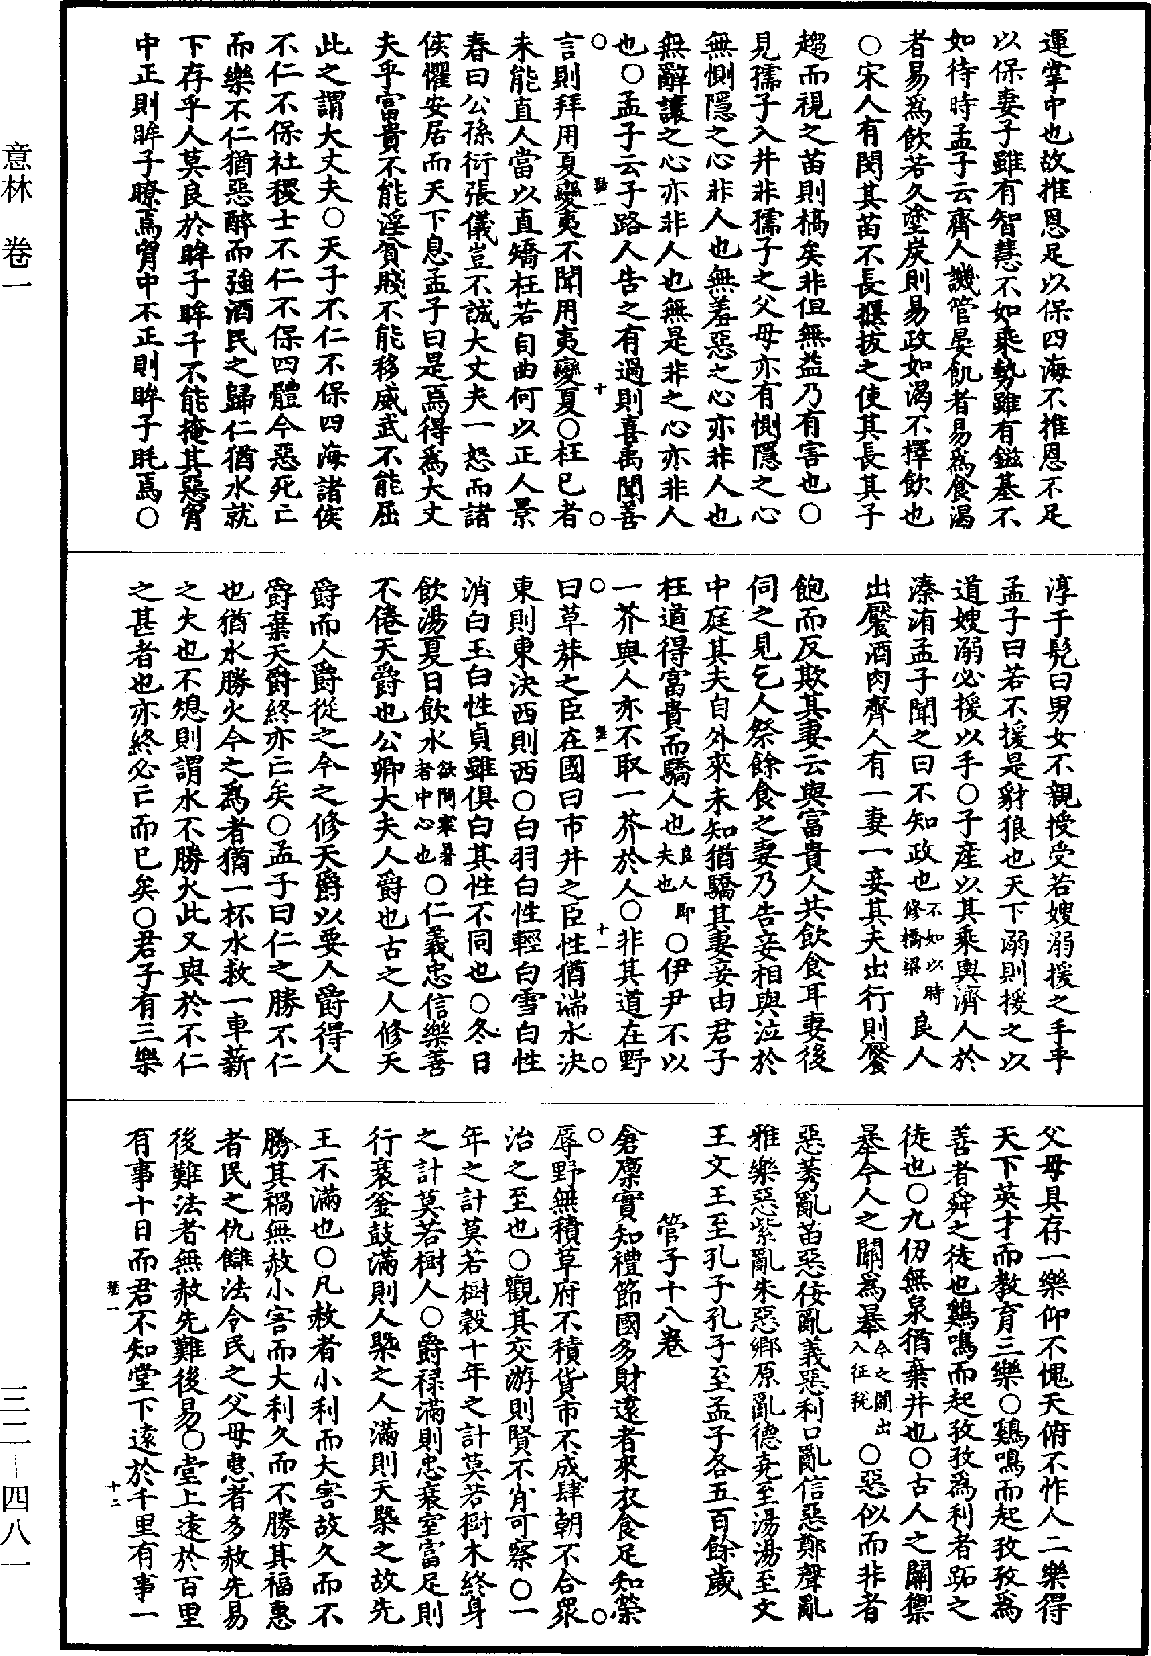 意林 卷一
三二—四八一
運掌中也故推恩足以保四海不推恩不足
以保妻子雖有智慧不如乘勢雖有鎡基不
如待時孟子云齊人譏管晏飢者易為食渴
者易為飲若久塗炭則易政如渴不擇飲也
○宋人有閔其苗不長揠拔之使其長其子
趨而視之苗則槁矣非但無益乃有害也○
見孺子入井非孺子之父母亦有惻隱之心
無惻隱之心非人也無羞惡之心亦非人也
無辭讓之心亦非人也無是非之心亦非人
也○孟子云子路人告之有過則喜禹聞善
言則拜用夏變夷不聞用夷變夏○枉己者
未能直人當以直矯枉若自曲何以正人景
春曰公孫衍張儀豈不誠大丈夫一怒而諸
侯懼安居而天下息孟子曰是焉得為大丈
夫乎富貴不能淫貧賤不能移威武不能屈
此之謂大丈夫○天子不仁不保四海諸侯
不仁不保社稷士不仁不保四體今惡死亡
而樂不仁猶惡醉而強酒民之歸仁猶水就
下存乎人莫良於眸子眸子不能掩其惡胷
中正則眸子瞭焉胷中不正則眸子眊焉○
淳于髡曰男女不親授受若嫂溺援之手乎
孟子曰若不援是豺狼也天下溺則援之以
道嫂溺必援以手○子產以其乘輿濟人於
溱洧孟子聞之曰不知政也不如以時修橋梁良人
出饜酒肉齊人有一妻一妾其夫出行則饜
飽而反欺其妻云與富貴人共飲食耳妻後
伺之見乞人祭餘食之妻乃告妾相與泣於
中庭其夫自外來未知猶驕其妻妾由君子
枉道得富貴而驕人也良人即夫也○伊尹不以
一芥與人亦不取一芥於人○非其道在野
曰草莽之臣在國曰市井之臣性猶湍水決
東則東決西則西○白羽白性輕白雪白性
消白玉白性貞雖俱白其性不同也○冬日
飲湯夏日飲水欲問寒暑者中心也○仁義忠信樂善
不倦天爵也公卿大夫人爵也古之人修天
爵而人爵從之今之修天爵以要人爵得人
爵棄天爵終亦亡矣○孟子曰仁之勝不仁
也猶水勝火今之為者猶一杯水救一車薪
之火也不熄則謂水不勝火此又與於不仁
之甚者也亦終必亡而已矣○君子有三樂
父母具存一樂仰不愧天俯不怍人二樂得
天下英才而教育三樂○鷄鳴而起孜孜為
善者舜之徒也鷄鳴而起孜孜為利者跖之
徒也○九仞無泉猶棄井也○古人之關禦
暴今人之關為暴今之關出入征稅○惡似而非者
惡莠亂苗惡佞亂義惡利口亂信惡鄭聲亂
雅樂惡紫亂朱惡鄉原亂德堯至湯湯至文
王文王至孔子孔子至孟子各五百餘歲
管子十八卷
倉廩實知禮節國多財遠者來衣食足知榮
辱野無積草府不積貨市不成肆朝不合眾
治之至也○觀其交游則賢不肖可察○一
年之計莫若樹穀十年之計莫若樹木終身
之計莫若樹人○爵祿滿則忠衰室富足則
行衰釜鼓滿則人槩之人滿則天槩之故先
王不滿也○凡赦者小利而大害故久而不
勝其禍無赦小害而大利久而不勝其福惠
者民之仇讎法令民之父母惠者多赦先易
後難法者無赦先難後易○堂上遠於百里
有事十日而君不知堂下遠於千里有事一